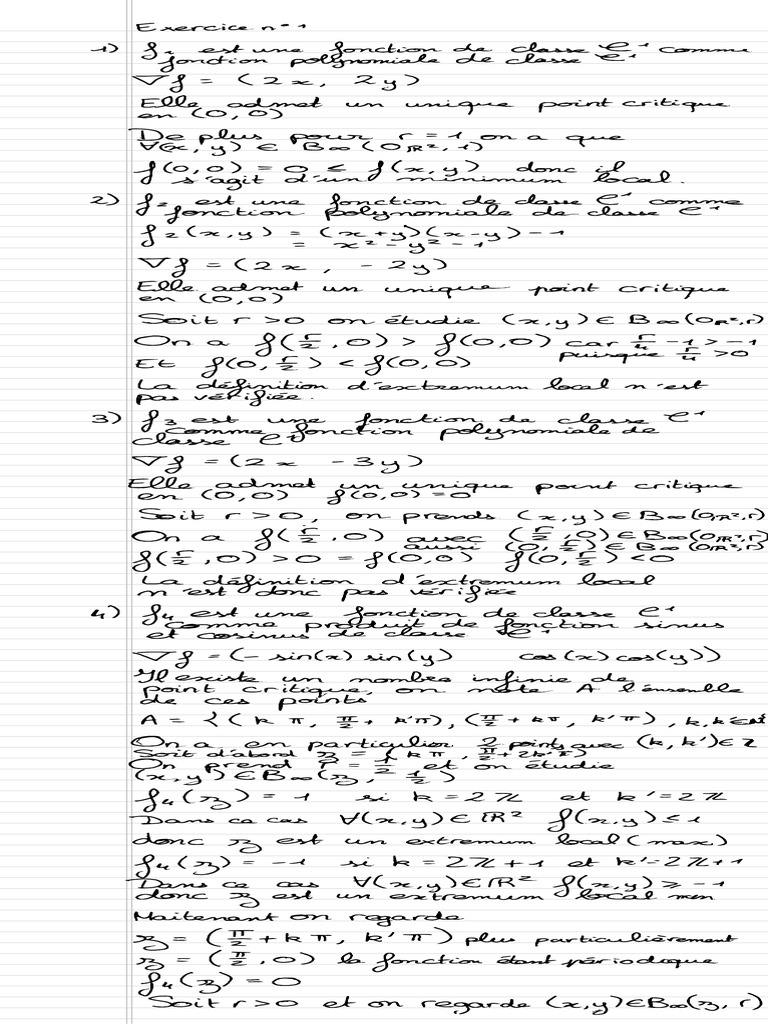 Exercice n°1
1) f₁ est une fonction de classe C¹ comme
fonction polynomiale de classe C¹
∇f = (2x, 2y)
Elle admet un unique point critique
en (0,0)
De plus pour r = 1 on a que
∀(x,y) ∈ B∞(0ℝ²,1)
f(0,0) = 0 ≤ f(x,y) donc il
s'agit d'un minimum local.
2) f₂ est une fonction de classe C¹ comme
fonction polynomiale de classe C¹
f₂(x,y) = (x+y)(x-y)-1
= x²-y²-1
∇f = (2x, -2y)
Elle admet un unique point critique
en (0,0)
Soit r>0 on étudie (x,y) ∈ B∞(0ℝ²,r)
On a f(r/2,0) > f(0,0) car r/4 -1 > -1
puisque r/4 >0
Et f(0,r/2) < f(0,0)
La définition d'extremum local n'est
pas vérifiée.
3) f₃ est une fonction de classe C¹
comme fonction polynomiale de
classe C¹
∇f = (2x -3y)
Elle admet un unique point critique
en (0,0) f(0,0)=0
Soit r>0, on prends (x,y) ∈ B∞(0ℝ²,r)
On a f(r/2,0) avec (r/2,0) ∈ B∞(0ℝ²,r)
aussi (0,r/2) ∈ B∞(0ℝ²,r)
f(r/2,0) >0 = f(0,0) f(0,r/2) <0
La définition d'extremum local
n'est donc pas vérifiée
4) f₄ est une fonction de classe C¹
comme produit de fonction sinus
et cosinus de classe C¹
∇f = (- sin(x) sin(y) cos(x) cos(y))
Il existe un nombre infinie de
point critique, on note A l'ensemble
de ces points
A = {(kπ, π/2 + k'π), (π/2 + kπ, k'π), k,k'∈
On a en particulier 2 points avec (k,k') ∈ Z
Soit d'abord = (kπ, π/2+2k'π)
On prend r = 1/2 et on étudie
(x,y) ∈ B∞(z, 1/2)
f₄(z) = 1 si k = 2Z et k' = 2Z
Dans ce cas ∀(x,y) ∈ ℝ² f(x,y) ≤ 1
donc z est un extremum local (max)
f₄(z) = -1 si k = 2Z+1 et k'=2Z+1
Dans ce cas ∀(x,y) ∈ ℝ² f(x,y) ≥ -1
donc z est un extremum local min
Maitenant on regarde
z = (π/2 + kπ, k'π) plus particulièrement
z = (π/2, 0) la fonction étant périodique
f₄(z) = 0
Soit r>0 et on regarde (x,y) ∈ B∞(z, r)